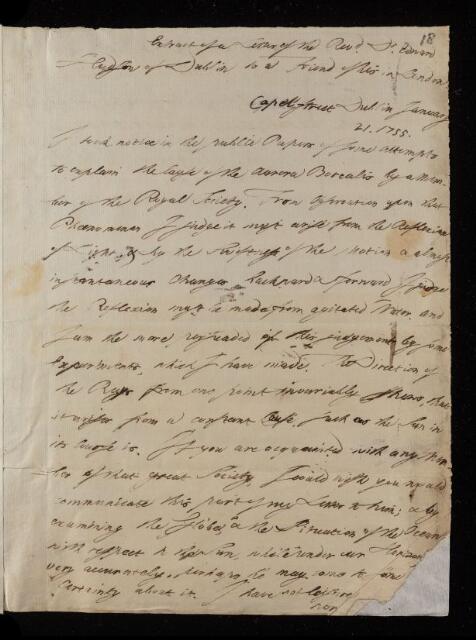 18
Extract of a Letter of the Revd. Dr. Edward
of Dublin to a Friend of his in London
Capel street Dublin January
21. 1755.
I took notice in the public Papers of some attempts
to explain the Cause of the Aurora Borealis by a Mem-
ber of the Royal Society. From observation upon that
Phænomenon I judge it must arise from the Reflexion
of Light, & by the of the Motion & almost
instantaneous Changes backward & forward I
the Reflexion must be made from agitated Water, and
I am the more in this judgement by some
Experiments, which I have made. The Direction of
the Rays from one point invariably shews, that
it arises from a constant Cause, such as the Sun in
its Course is. If you are acquainted with any Mem-
ber of that great Society I could wish you would
communicate this part of my Letter to him; & by
examining the Globe, & the Situation of the Ocean
with respect to the Sun, while under our Horizon
very accurately, perhaps he may come to some
Certainty about it. I have not leisure
nor